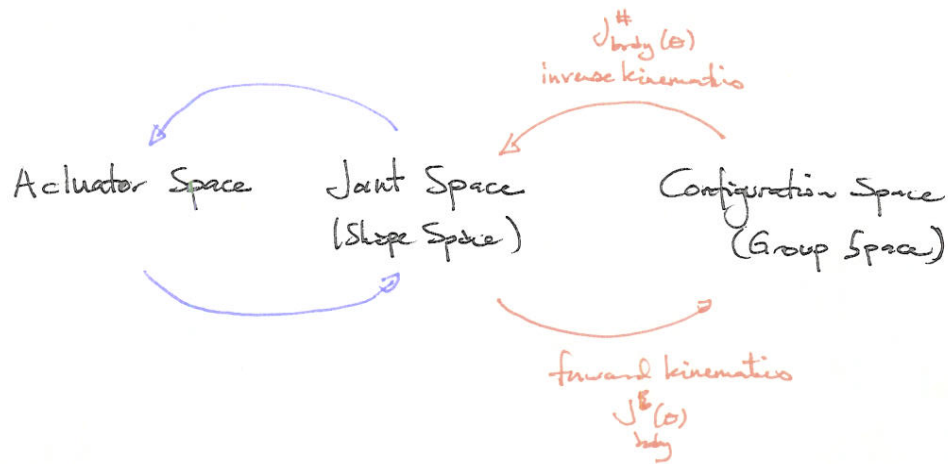 J#body(θ)
inverse kinematics
Actuator Space
Joint Space
(Shape Space)
Configuration Space
(Group Space)
forward kinematics
J (θ)
body